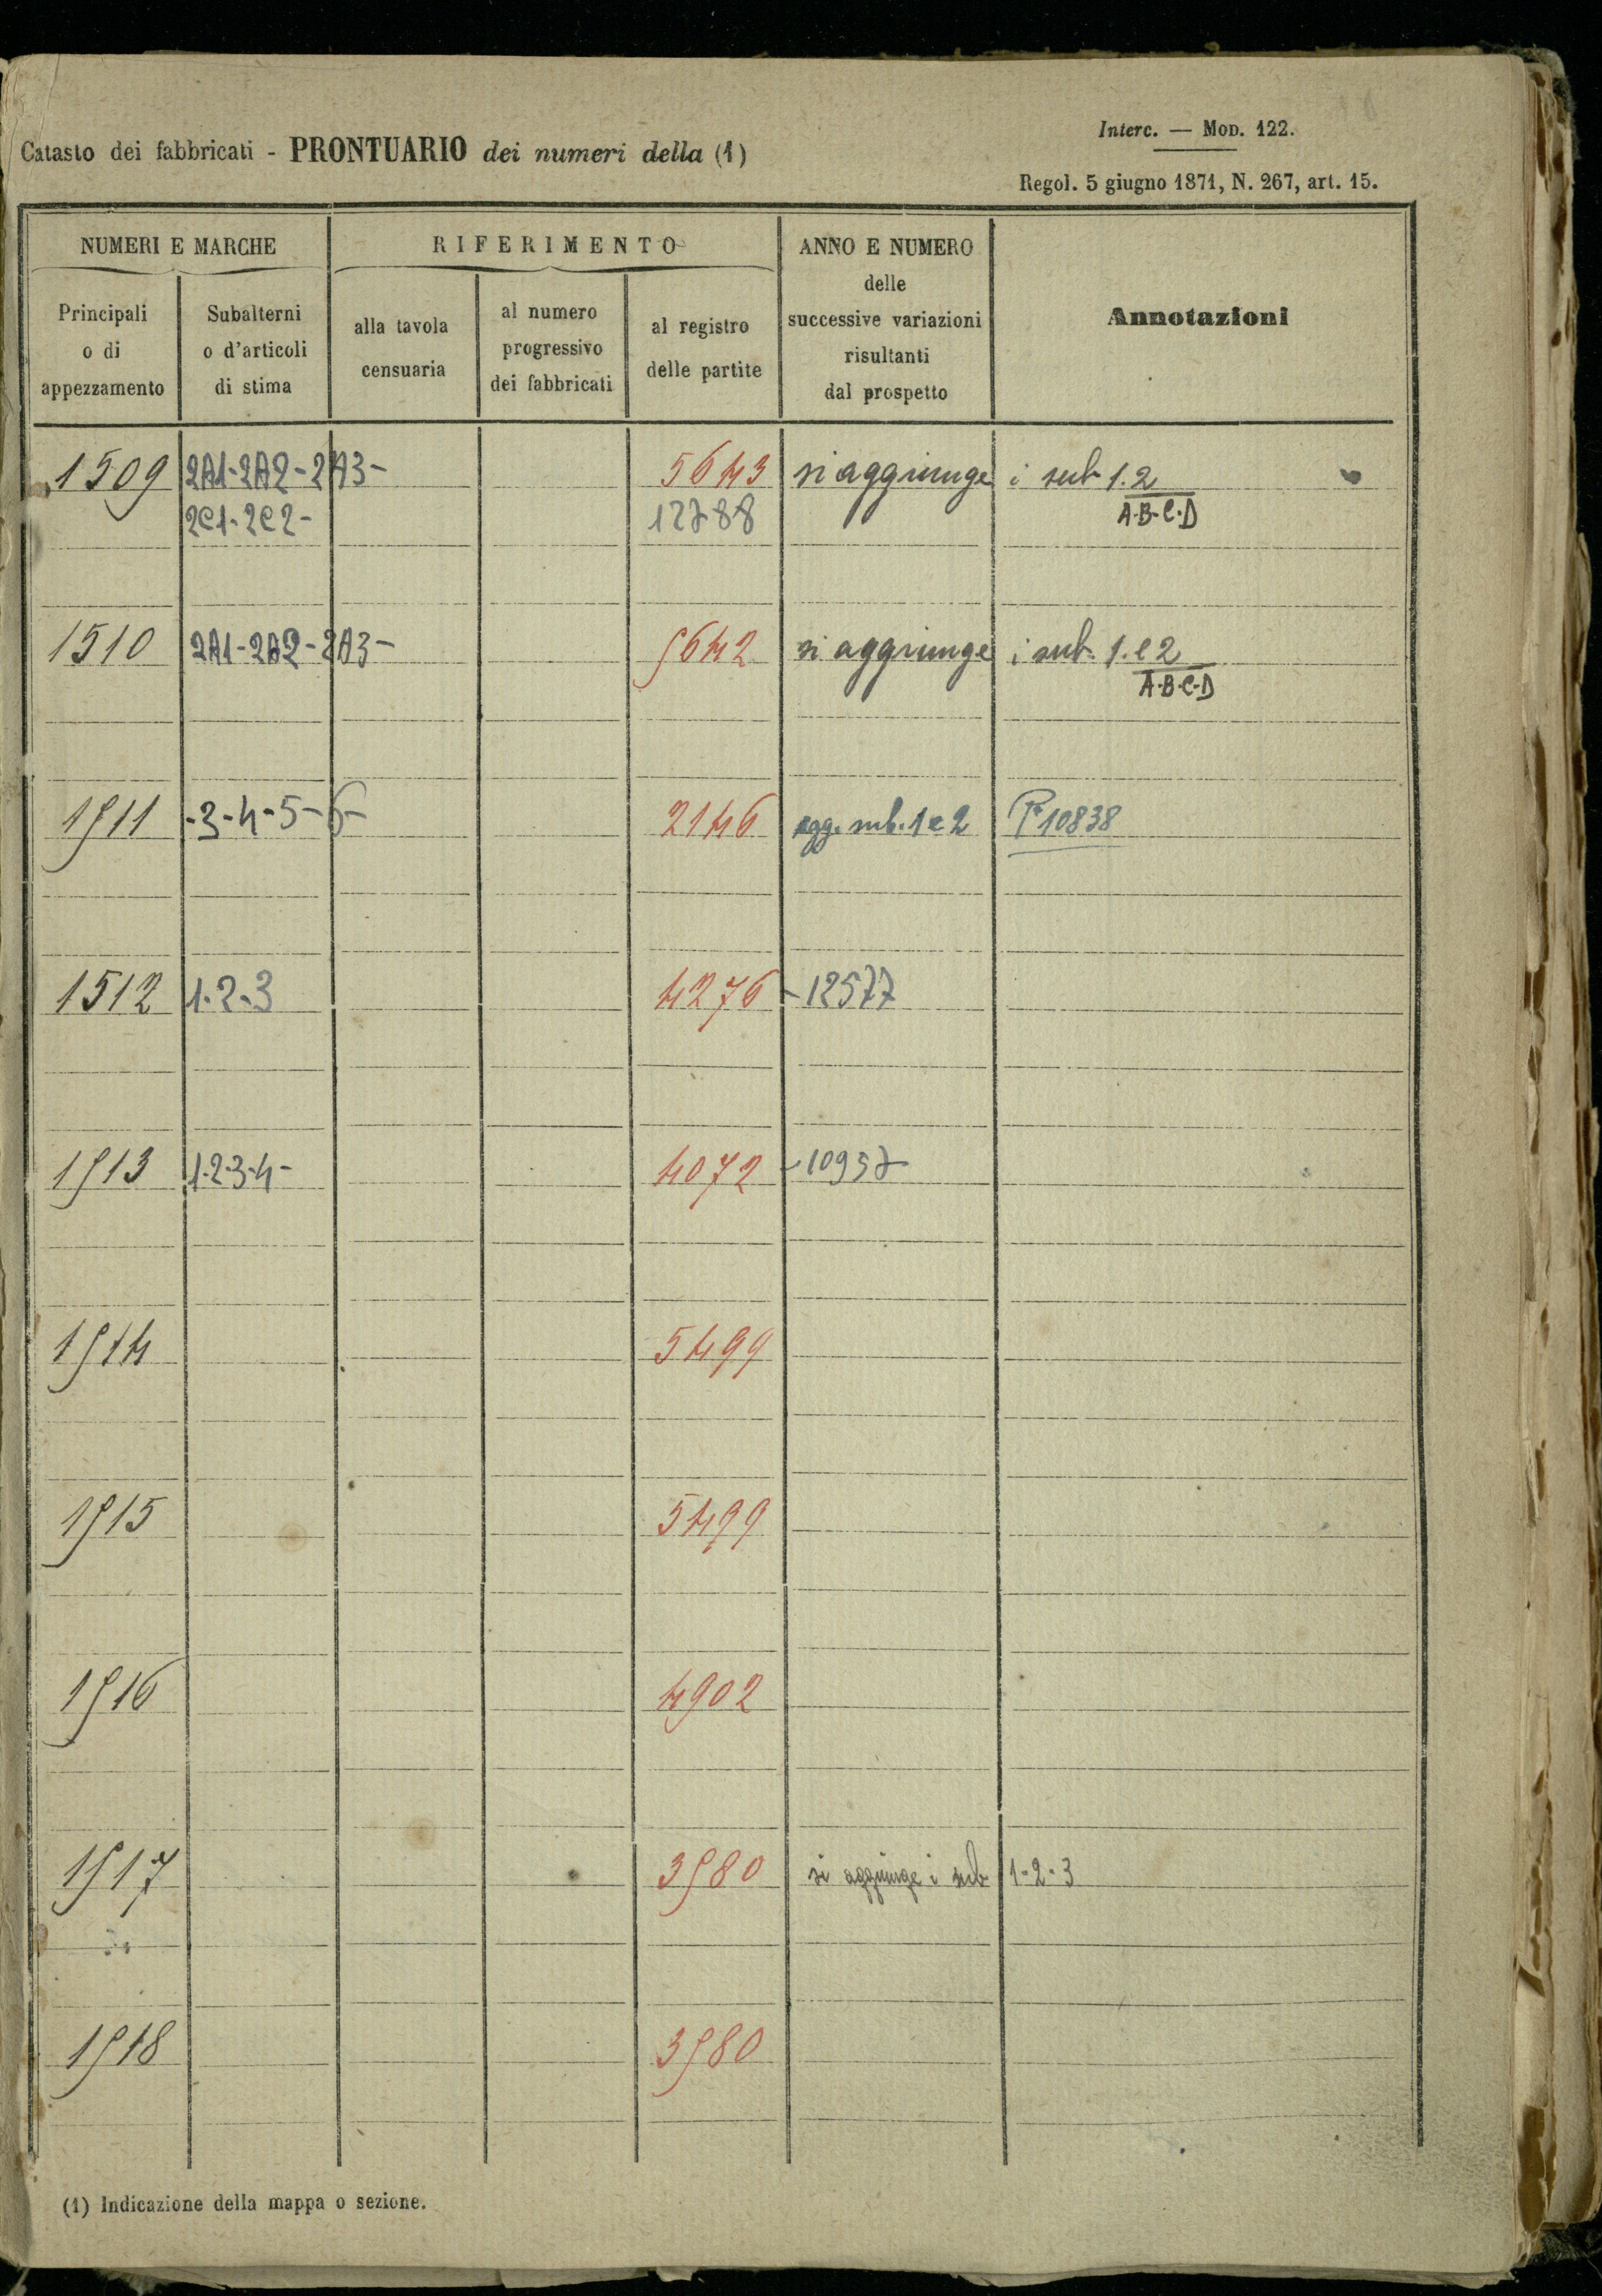 Interc. — Mod. 122.
Catasto dei fabbricati - PRONTUARIO dei numeri della (1)
Regol. 5 giugno 1871, N. 267, art. 15.
NUMERI E MARCHE
RIFERIMENTO
ANNO E NUMERO
delle
successive variazioni
risultanti
dal prospetto
Annotazioni
Principali
o di
appezzamento
Subalterni
o d'articoli
di stima
alla tavola
censuaria
al numero
progressivo
dei fabbricati
al registro
delle partite
1509 2A1-2A2-2A3- 5643 si aggiunge i sub 1.2
2C1-2C2- 12788 A-B-C-D
1510 2A1-2A2-2A3- 5642 si aggiunge i sub. 1. e 2
A-B-C-D
1511 -3-4-5-6- 2146 agg. sub. 1 e 2 P 10838
1512 1-2-3 4276 -12577
1513 1-2-3-4- 4072 -10957
1514 5499
1515 5499
1516 4902
1517 3580 si aggiunge i sub 1-2-3
1518 3580
(1) Indicazione della mappa o sezione.